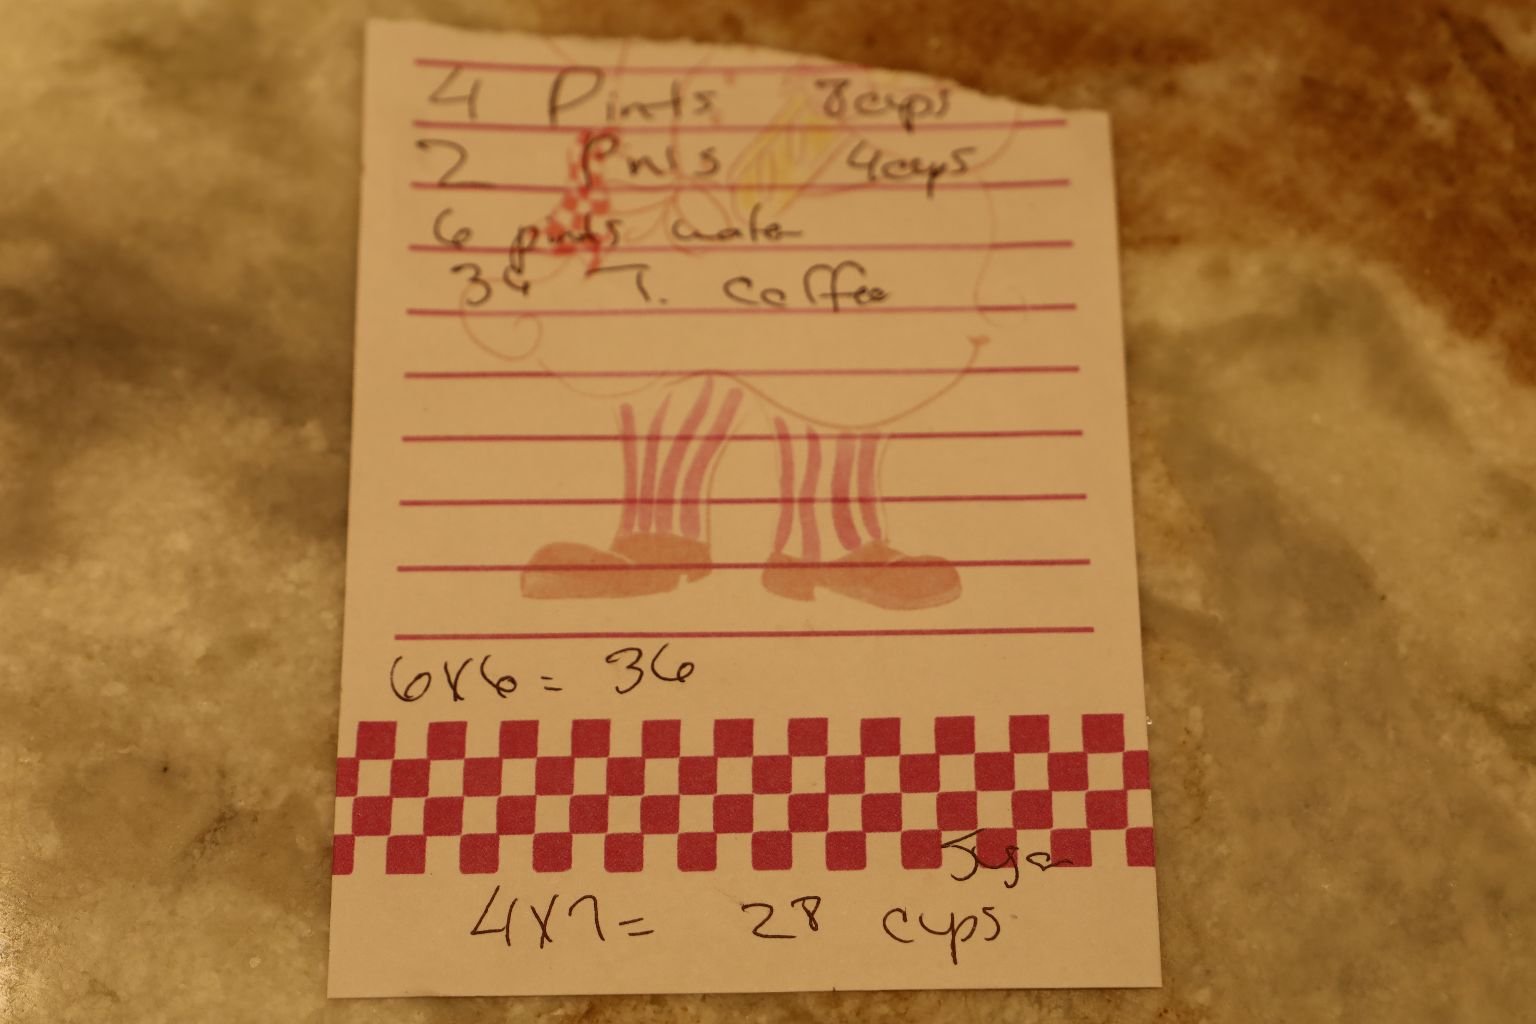 4 Pints 8cups
2 Pnts 4cups
6 pints water
36 T. Coffee
6x6= 36
Suga
4x7= 28 cups